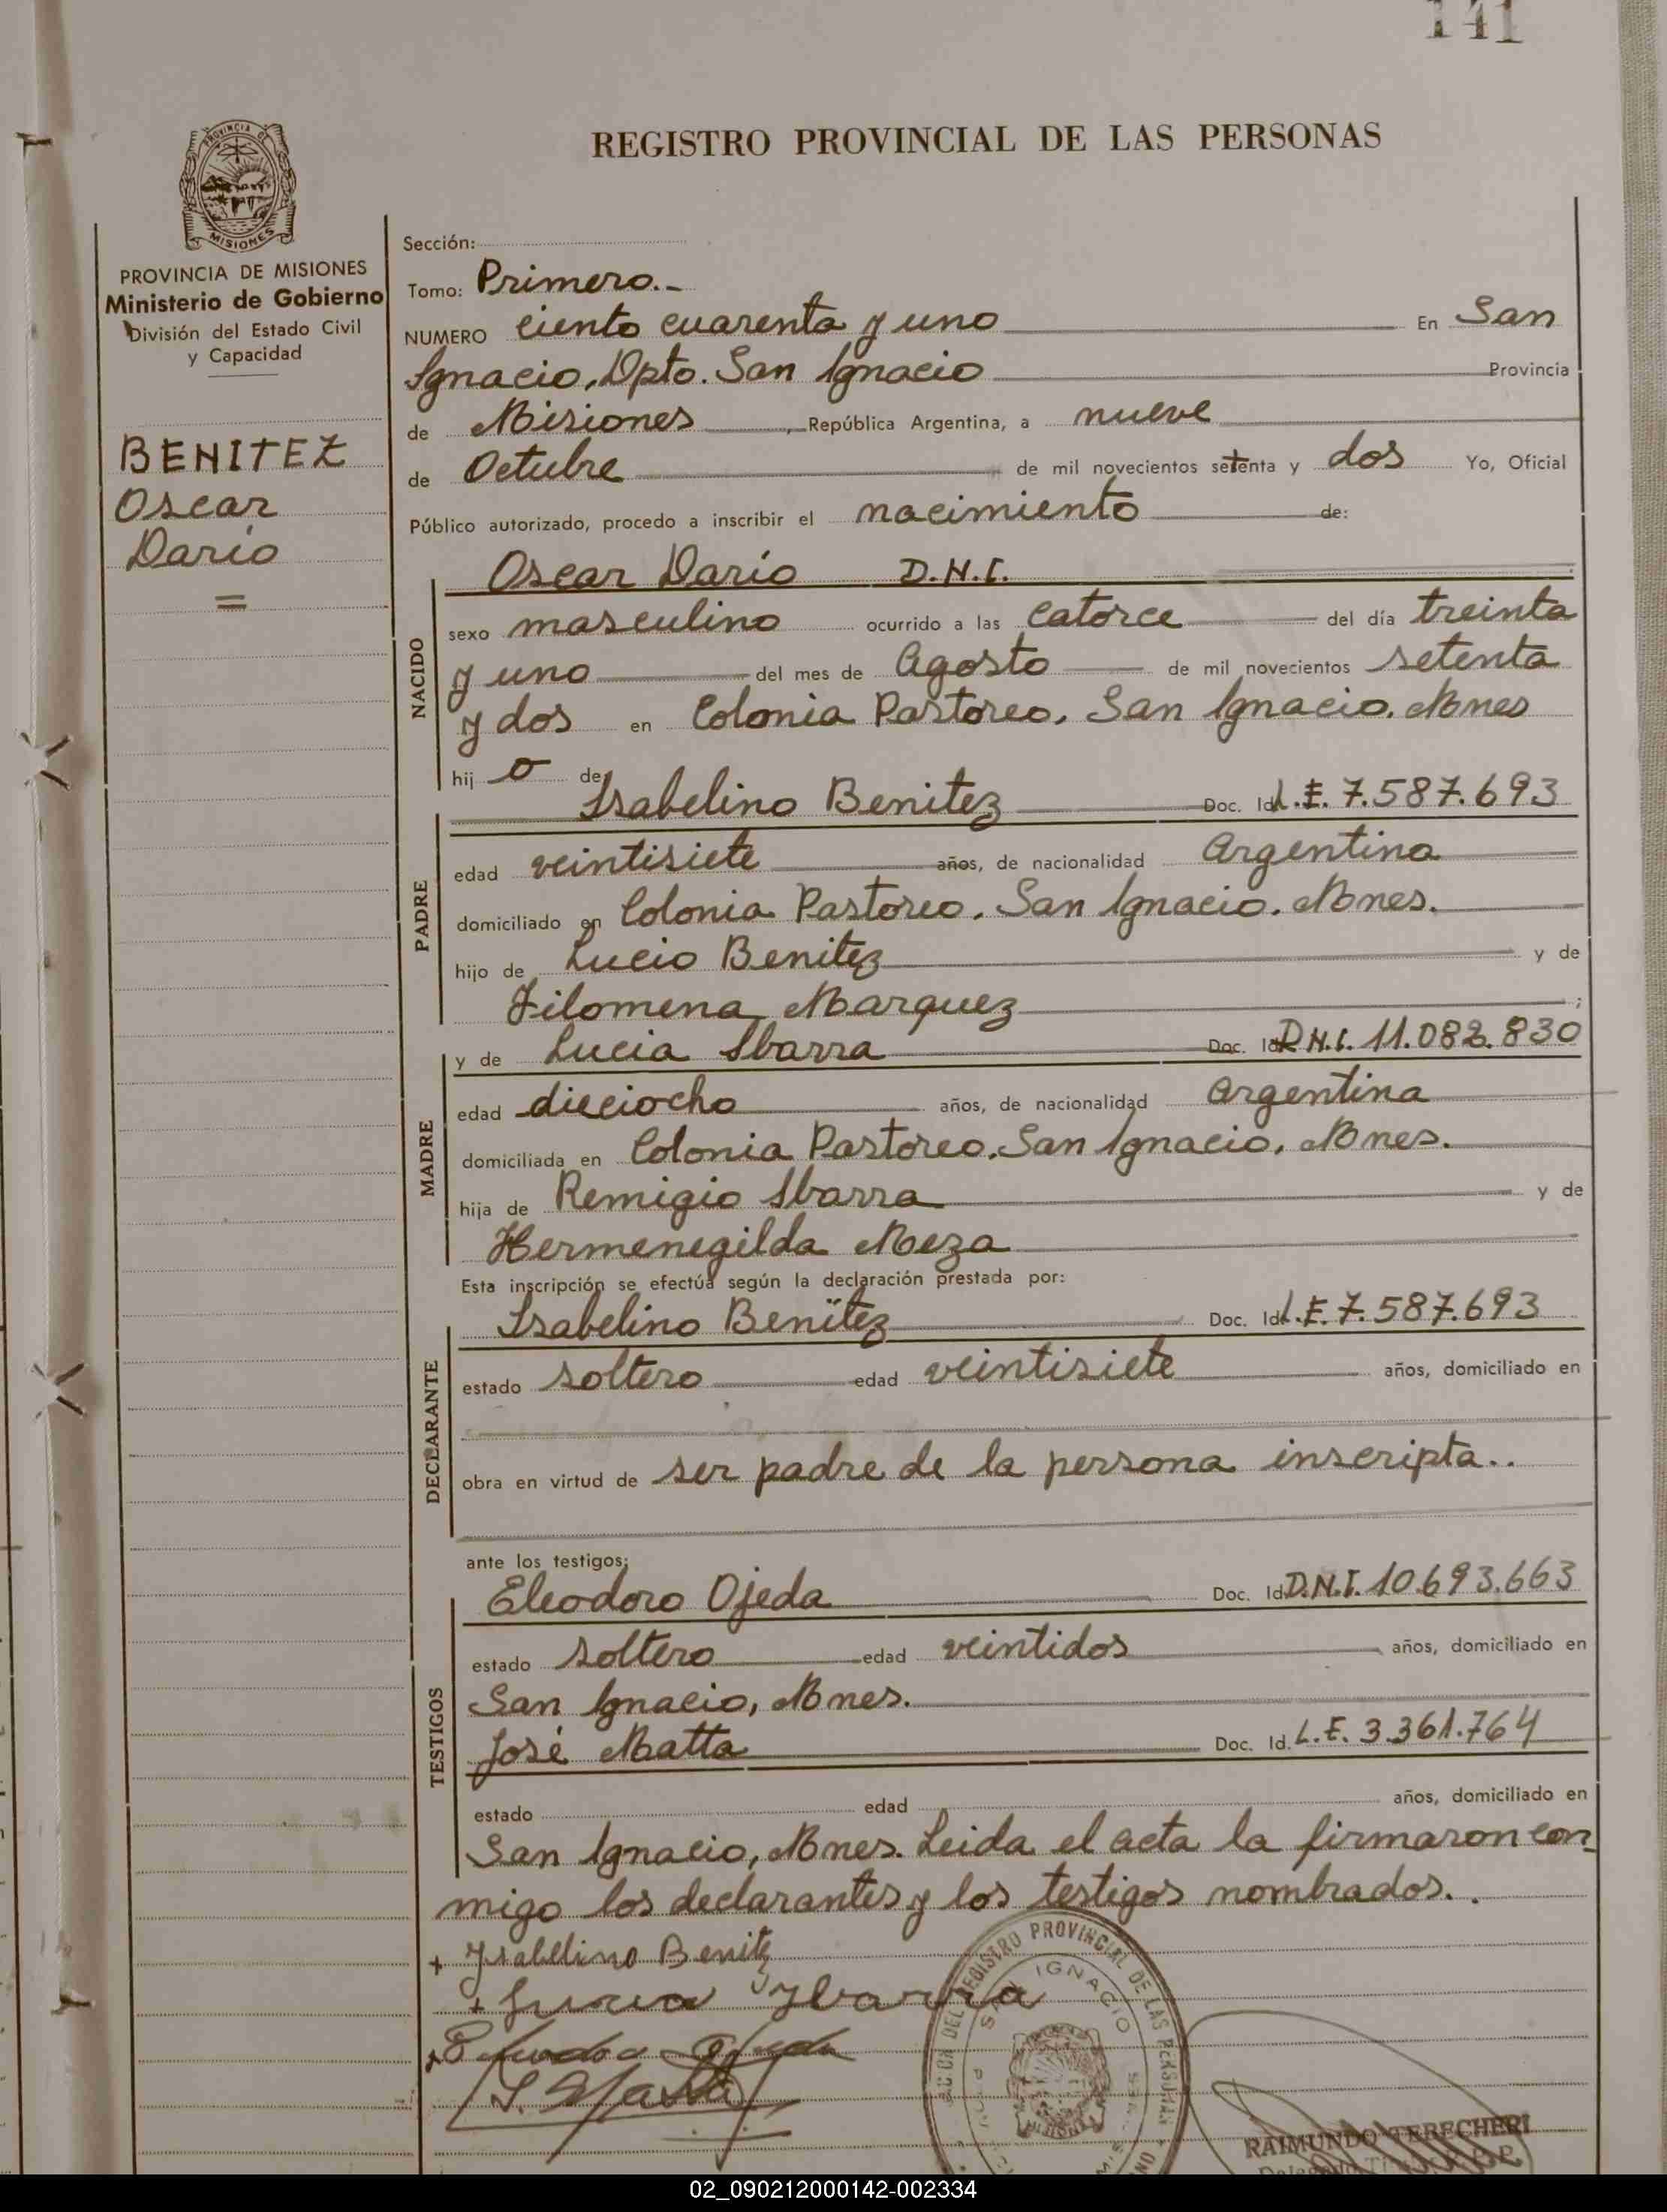 141
REGISTRO PROVINCIAL DE LAS PERSONAS
PROVINCIA DE
MISIONES
PROVINCIA DE MISIONES
Ministerio de Gobierno
División del Estado Civil
y Capacidad
BENITEZ
Oscar
Darío
=
Sección:
Tomo: Primero.-
NUMERO ciento cuarenta y uno En San
Ignacio, Dpto. San Ignacio Provincia
de Misiones, República Argentina, a nueve
de Octubre de mil novecientos setenta y dos Yo, Oficial
Público autorizado, procedo a inscribir el nacimiento de:
Oscar Darío D.N.I.
NACIDO
sexo masculino ocurrido a las catorce del día treinta
y uno del mes de Agosto de mil novecientos setenta
y dos en Colonia Pastoreo, San Ignacio, Mnes
hij o de
Isabelino Benitez Doc. Id L.E. 7.587.693
PADRE
edad veintisiete años, de nacionalidad Argentina
domiciliado en Colonia Pastoreo, San Ignacio, Mnes.
hijo de Lucio Benitez y de
Filomena Marquez ;
y de Lucia Ibarra Doc. Id D.N.I. 11.082.830
MADRE
edad dieciocho años, de nacionalidad Argentina
domiciliada en Colonia Pastoreo, San Ignacio, Mnes.
hija de Remigio Ibarra y de
Hermenegilda Meza
Esta inscripción se efectúa según la declaración prestada por:
Isabelino Benitez Doc. Id L.E. 7.587.693
DECLARANTE
estado soltero edad veintisiete años, domiciliado en
obra en virtud de ser padre de la persona inscripta..
ante los testigos;
Eleodoro Ojeda Doc. Id D.N.I. 10.693.663
TESTIGOS
estado soltero edad veintidos años, domiciliado en
San Ignacio, Mnes.
José Matta Doc. Id. L.E. 3.361.764
estado edad años, domiciliado en
San Ignacio, Mnes. Leida el acta la firmaron con-
migo los declarantes y los testigos nombrados..
+ Ysabelino Benitez
+ Lucia Ybarra
+ Eleodoro Ojeda
J. Matta
DEL REGISTRO PROVINCIAL DE LAS PERSONAS
SAN IGNACIO
RAIMUNDO TERECHERI
02_090212000142-002334